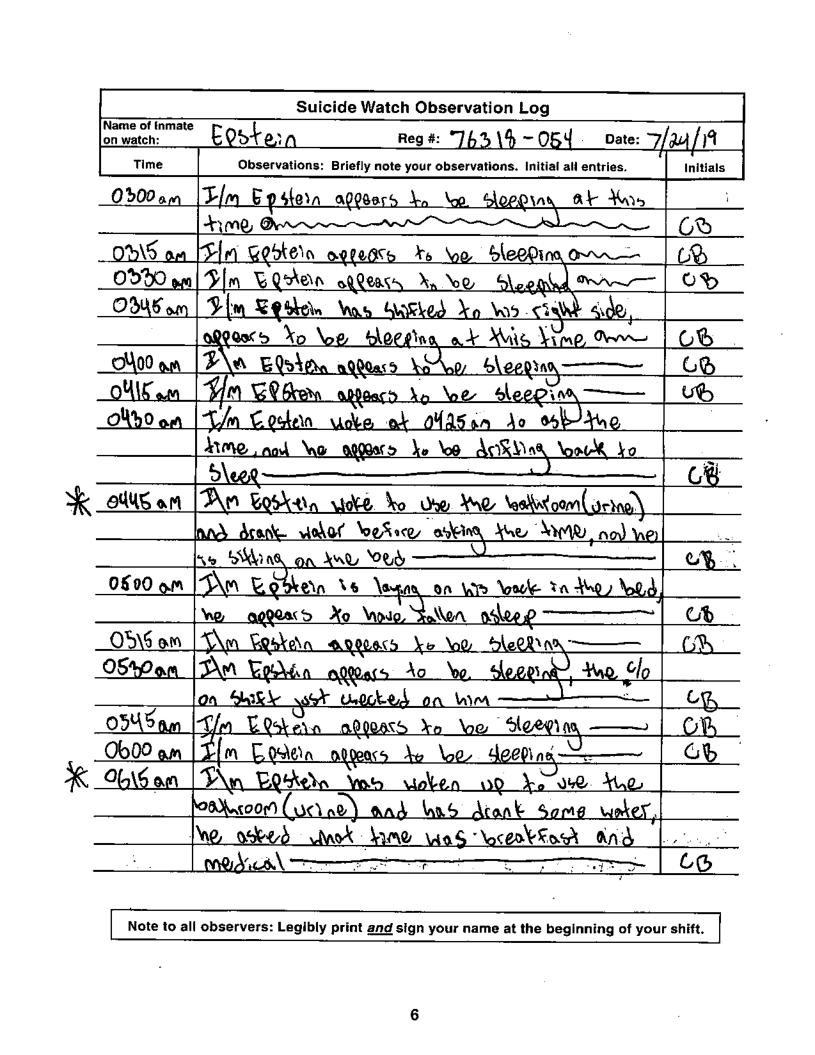 Suicide Watch Observation Log
Name of Inmate on watch: Epstein Reg #: 76318-054 Date: 7/24/19
Time Observations: Briefly note your observations. Initial all entries. Initials
0300 am I/m Epstein appears to be sleeping at this
time CB
0315 am I/m Epstein appears to be sleeping CB
0330 am I/m Epstein appears to be sleeping CB
0345 am I/m Epstein has shifted to his right side,
appears to be sleeping at this time CB
0400 am I/m Epstein appears to be sleeping CB
0415 am I/m Epstein appears to be sleeping CB
0430 am I/m Epstein woke at 0425 am to ask the
time, now he appears to be drifting back to
sleep CB
* 0445 am I/m Epstein woke to use the bathroom (urine)
and drank water before asking the time, now he
is sitting on the bed CB
0500 am I/m Epstein is laying on his back in the bed,
he appears to have fallen asleep CB
0515 am I/m Epstein appears to be sleeping CB
0530 am I/m Epstein appears to be sleeping, the c/o
on shift just checked on him CB
0545 am I/m Epstein appears to be sleeping CB
0600 am I/m Epstein appears to be sleeping CB
* 0615 am I/m Epstein has woken up to use the
bathroom (urine) and has drank some water,
he asked what time was breakfast and
medical CB
Note to all observers: Legibly print and sign your name at the beginning of your shift.
6